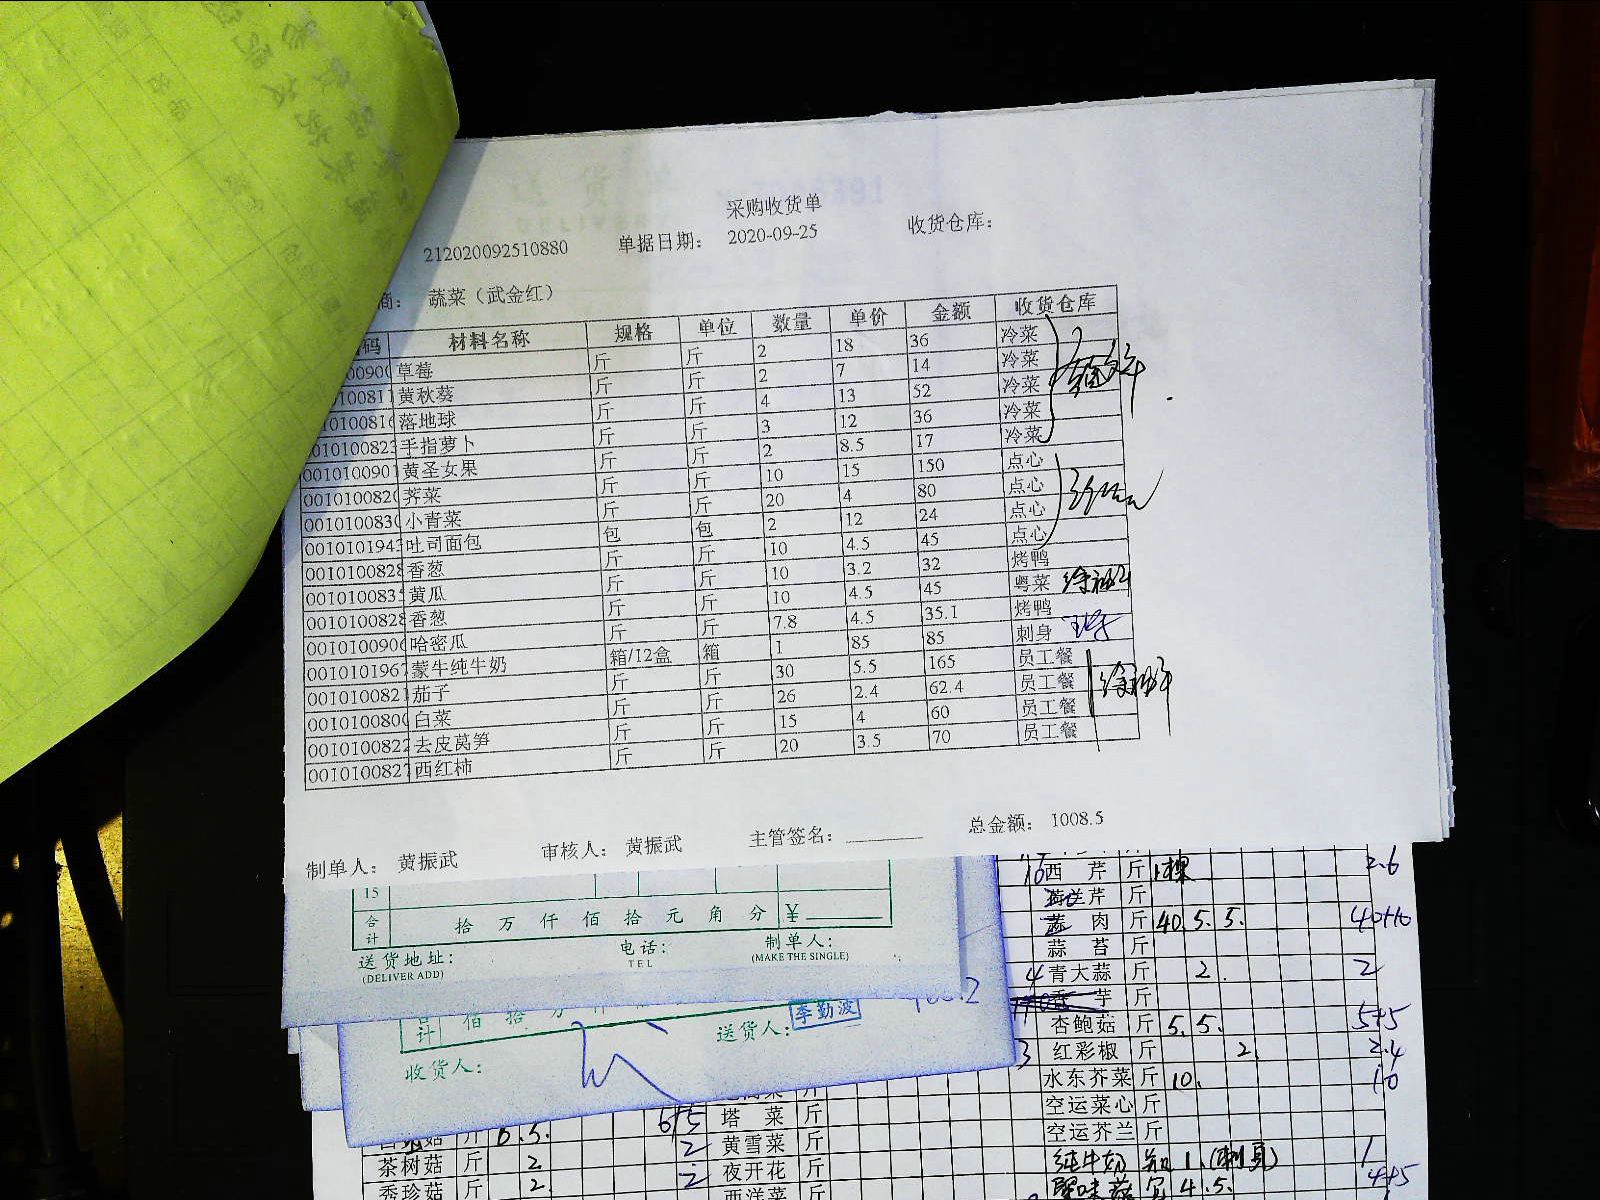 采购收货单
212020092510880 单据日期: 2020-09-25 收货仓库:
商: 蔬菜（武金红）
码 材料名称 规格 单位 数量 单价 金额 收货仓库
00900 草莓 斤 斤 2 18 36 冷菜
0100811 黄秋葵 斤 斤 2 7 14 冷菜
10100816 落地球 斤 斤 4 13 52 冷菜
0010100823 手指萝卜 斤 斤 3 12 36 冷菜
0010100901 黄圣女果 斤 斤 2 8.5 17 冷菜
0010100820 荠菜 斤 斤 10 15 150 点心
0010100830 小青菜 斤 斤 20 4 80 点心
0010101943 吐司面包 包 包 2 12 24 点心
0010100828 香葱 斤 斤 10 4.5 45 点心
0010100835 黄瓜 斤 斤 10 3.2 32 烤鸭
0010100828 香葱 斤 斤 10 4.5 45 粤菜
0010100906 哈密瓜 斤 斤 7.8 4.5 35.1 烤鸭
0010101967 蒙牛纯牛奶 箱/12盒 箱 1 85 85 刺身
0010100821 茄子 斤 斤 30 5.5 165 员工餐
0010100800 白菜 斤 斤 26 2.4 62.4 员工餐
0010100822 去皮莴笋 斤 斤 15 4 60 员工餐
0010100827 西红柿 斤 斤 20 3.5 70 员工餐
制单人: 黄振武 审核人: 黄振武 主管签名: 总金额: 1008.5
15
合计 拾 万 仟 佰 拾 元 角 分 ¥
送货地址: 电话: 制单人:
(DELIVER ADD) TEL (MAKE THE SINGLE)
计 佰 拾 万
收货人: 送货人: 李勤波
西芹 斤 1棵 2.6
芹 斤
肉 斤 40. 5. 5. 40+10
蒜苔 斤
4 青大蒜 斤 2. 2
香芋 斤
杏鲍菇 斤 5. 5. 5+5
3 红彩椒 斤 2. 2.4
水东芥菜 斤 10. 10
空运菜心 斤
空运芥兰 斤
纯牛奶 1.(刺身) 1
4.5. 4+5
菇 斤 6.5. 6+5 塔菜 斤
茶树菇 斤 2. 2 黄雪菜 斤
秀珍菇 斤 2. 2 夜开花 斤
西洋菜 斤